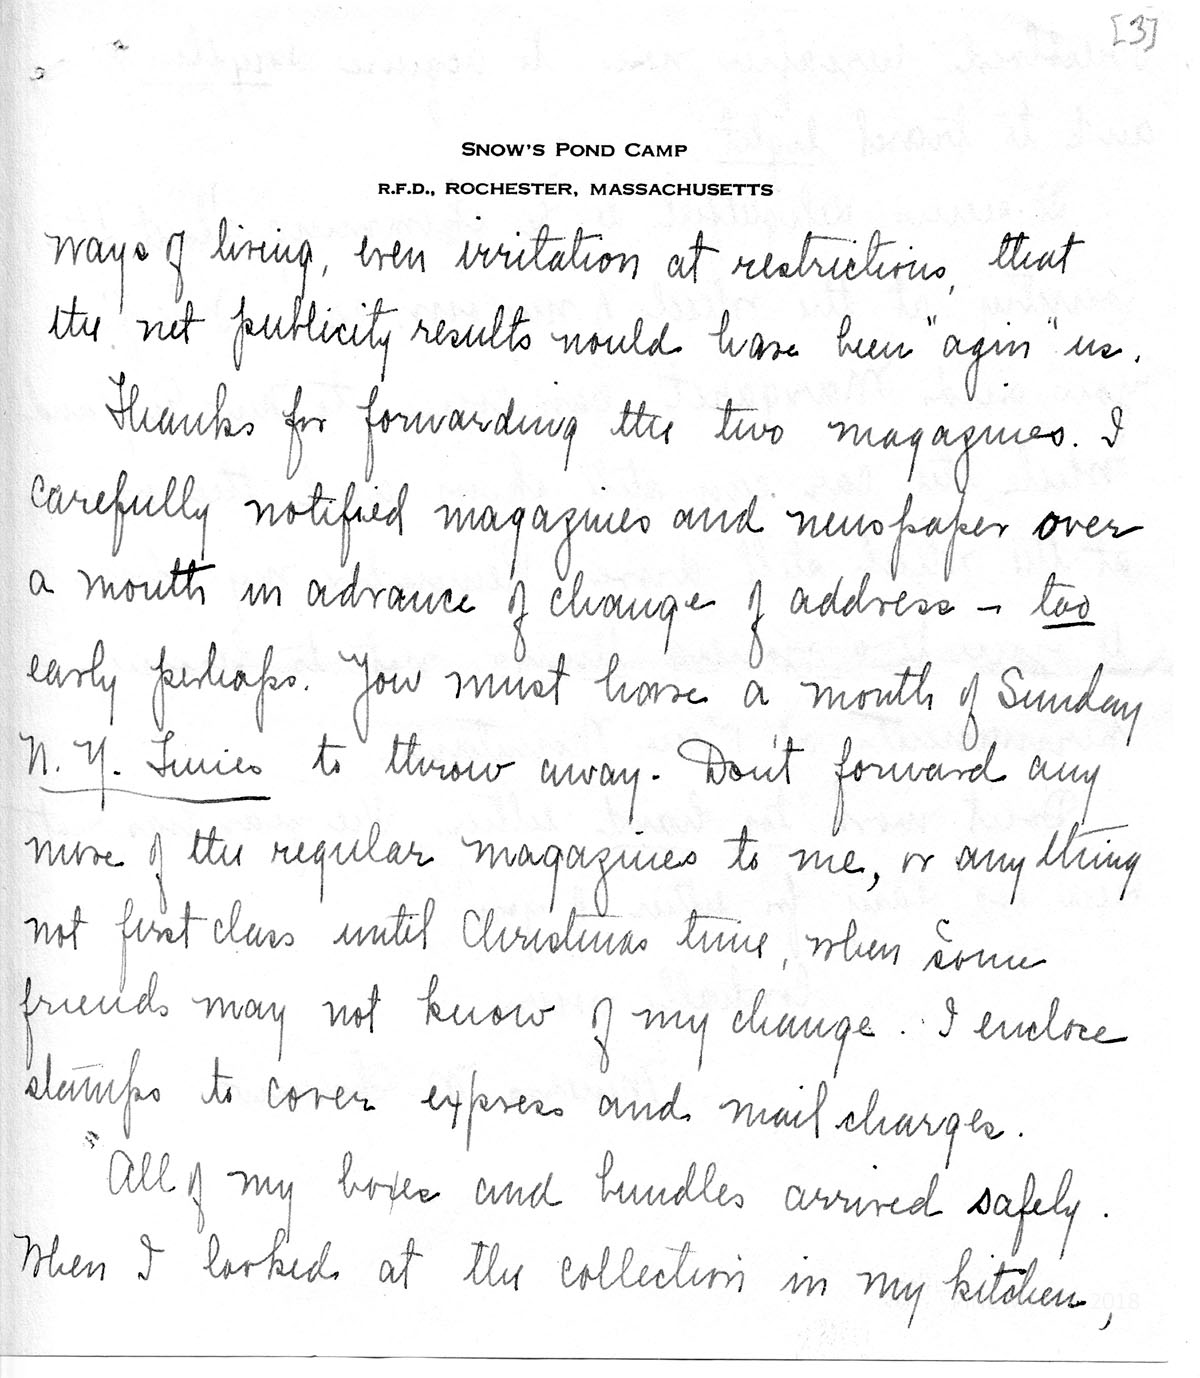 [3]
SNOW'S POND CAMP
R.F.D., ROCHESTER, MASSACHUSETTS
ways of living, even irritation at restrictions, that
the net publicity results would have been "agin" us.
Thanks for forwarding the two magazines. I
carefully notified magazines and newspaper over
a month in advance of change of address – too
early perhaps. You must have a month of Sunday
N. Y. Times to throw away. Don't forward any
more of the regular magazines to me, or anything
not first class until Christmas time, when some
friends may not know of my change. I enclose
stamps to cover express and mail charges.
All of my boxes and bundles arrived safely.
When I looked at the collection in my kitchen,
2018